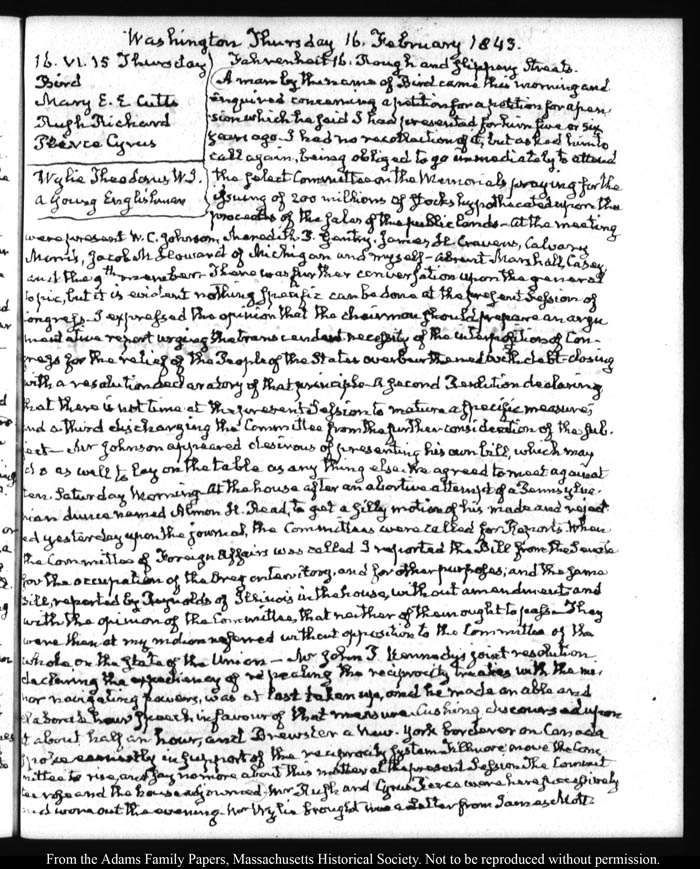 Washington Thursday 16. February 1843.
16. VI. 15 Thursday
Bird
Mary E. E. Cutts
Rugh Richard
Pierce Cyrus
Wylie Theodorus W. J.
a Young Englishman
Fahrenheit 16. Rough and slippery Streets.
A man by the name of Bird came this morning and
enquired concerning a petition for a petition for a pen-
sion which he said I had presented for him five or six
years ago. I had no recollection of it, but asked him to
call again, being obliged to go immediately to attend
the select Committee on the Memorials praying for the
issuing of 200 millions of Stocks hypothecated upon the
proceeds of the sales of the public lands— At the meeting
were present W. C. Johnson, Meredith P. Gentry, James H. Cravens, Calvary
Morris, Jacob M. Howard of Michigan and myself— absent Marshall, Casey
and the 9th member— There was further conversation upon the general
topic, but it is evident nothing specific can be done at the present Session of
Congress. I expressed the opinion that the chairman should prepare an argu
mentative report urging the transcendent necessity of the interposition of Con-
gress for the relief of the People of the States overburthened with debt— closing
with a resolution declaratory of that principle— A second Resolution declaring
that there is not time at the present Session to mature a specific measure,
and a third discharging the Committee from the further consideration of the sub-
ject— Mr Johnson appeared desirous of presenting his own bill, which may
do as well to lay on the table as any thing else. We agreed to meet again at
ten, Saturday Morning. At the house after an abortive attempt of a Pennsylva-
nian dunce named Almon H. Read, to get a silly motion of his made and reject-
ed yesterday upon the journal, the Committees were called for Reports. When
the Committee of Foreign Affairs was called I reported the Bill from the Senate
for the occupation of the Oregon territory, and for other purposes; and the same
bill, reported by Reynolds of Illinois in the house, without amendment and
with the opinion of the Committee, that neither of them ought to pass— They
were then at my motion referred without opposition to the Committee of the
whole on the state of the Union— Mr John P. Kennedy's joint resolution
declaring the expediency of repealing the reciprocity treaties with the mi-
nor navigating powers, was at last taken up, and he made an able and
elaborate hours speech in favour of that measure. Cushing discoursed upon
it about half an hour, and Brewster a New-York borderer on Canada
spoke earnestly in support of the reciprocity System. Fillmore move the Com-
mittee to rise, and say no more about this matter at the present Session. The Commit
tee rose and the house adjourned. Mr Rugh and Cyrus Pierce were here successively
and wore out the evening. Mr Wylie brought me a Letter from James Mott
From the Adams Family Papers, Massachusetts Historical Society. Not to be reproduced without permission.